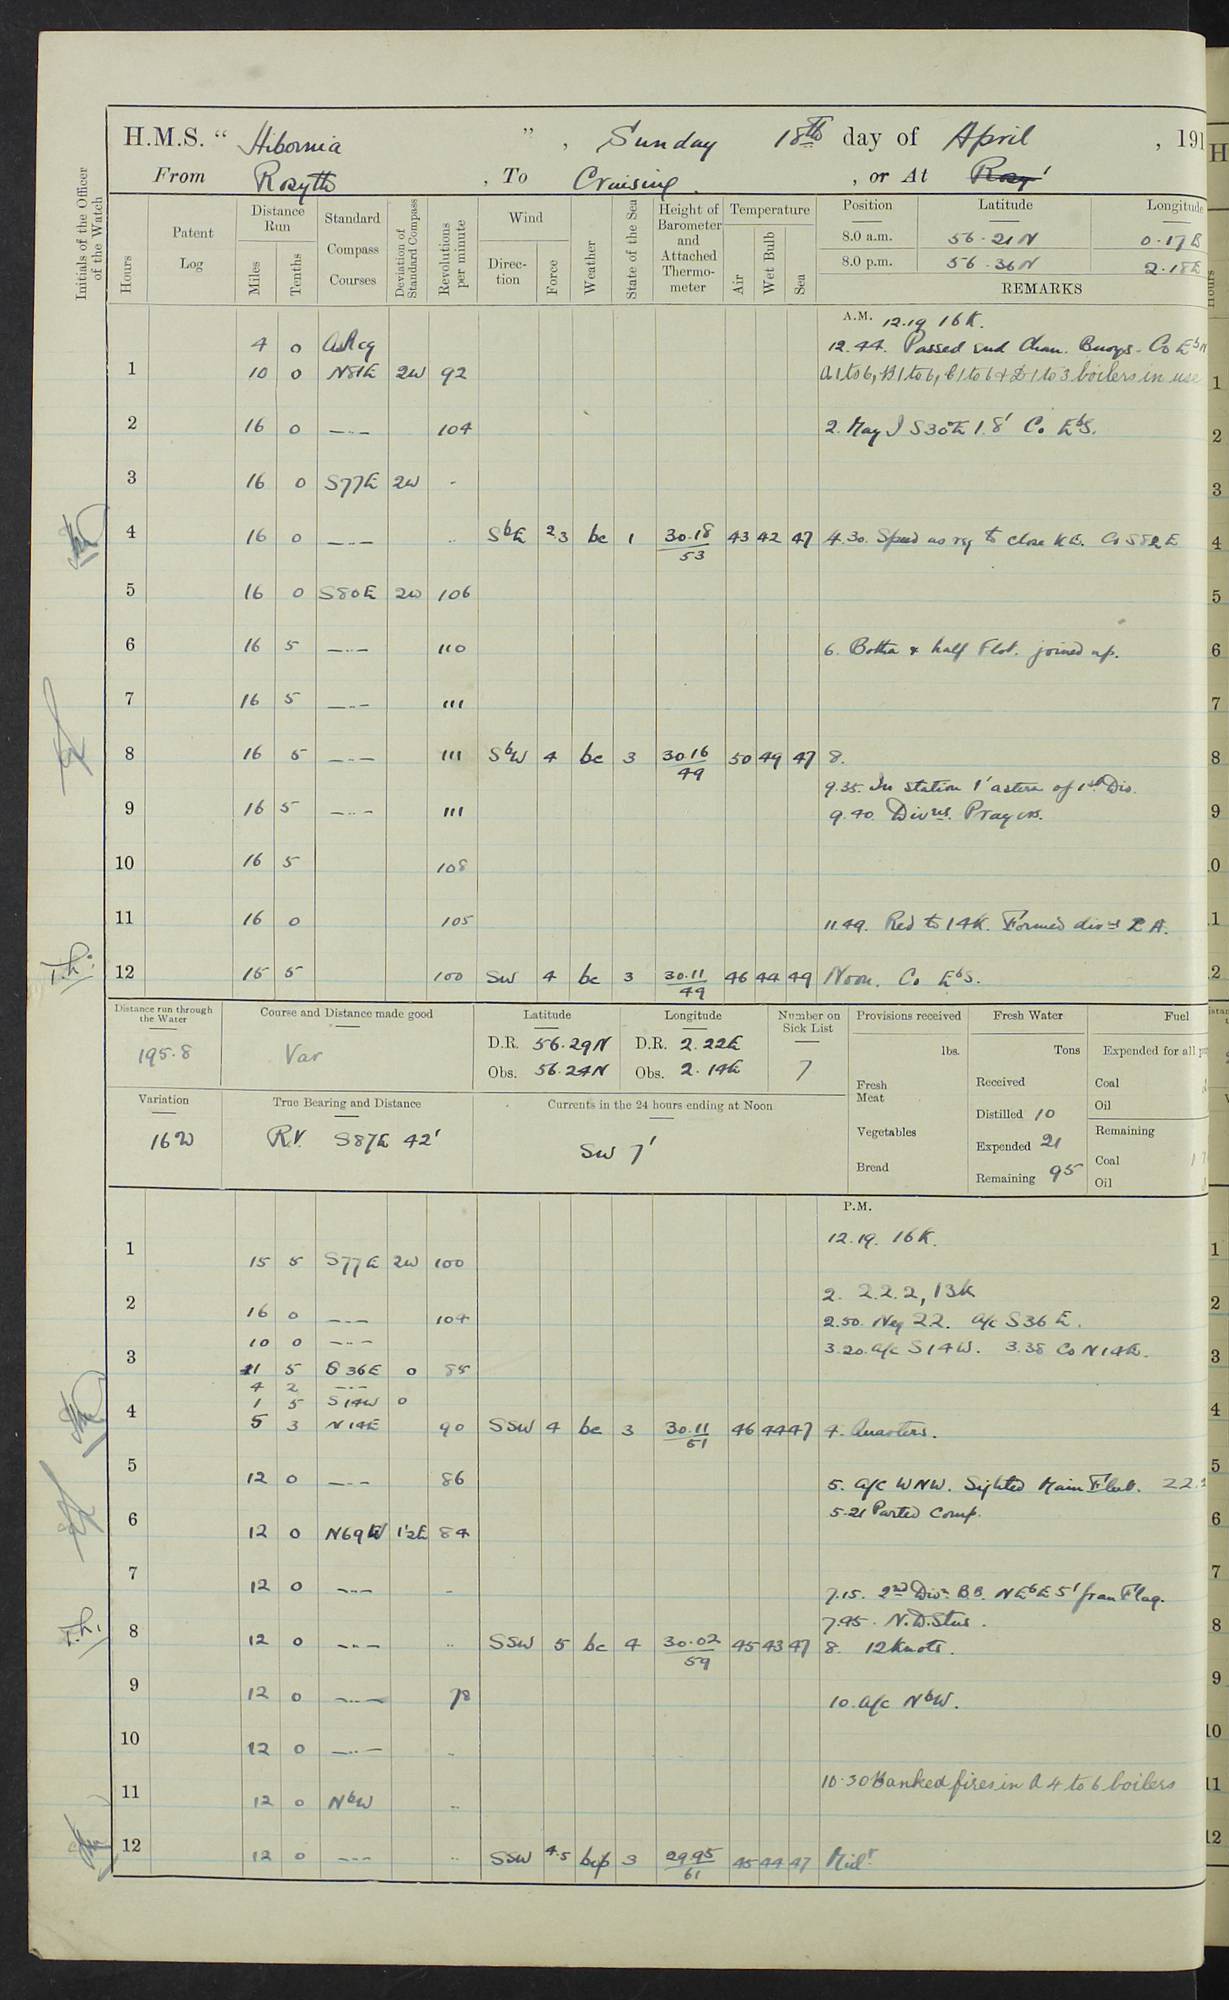 H.M.S. " Hibernia ", Sunday 18th day of April, 191
From Rosyth, To Cruising, or At Rosy'
Initials of the Officer of the Watch
Hours
Patent Log
Distance Run
Miles
Tenths
Standard Compass Courses
Deviation of Standard Compass
Revolutions per minute
Wind
Direction
Force
Weather
State of the Sea
Height of Barometer and Attached Thermometer
Temperature
Air
Wet Bulb
Sea
Position Latitude Longitude
8.0 a.m. 56.21N 0.17E
8.0 p.m. 56.36N 2.18E
REMARKS
A.M. 12.19 16K.
4 0 AsReq 12.44. Passed Chan. Buoys. Co EbN
1 10 0 N81E 2W 92 A1 to 6, B1 to 6, C1 to 6 & D1 to 3 boilers in use
2 16 0 —..— 104 2. May I S30E 1.8' Co EbS.
3 16 0 S77E 2W "
4 16 0 —..— .. SbE 2.3 bc 1 30.18/53 43 42 47 4.30. Speed as req to close K.E. Co S82E
5 16 0 S80E 2W 106
6 16 5 —..— 110 6. Botha & half Flot. joined up.
7 16 5 —..— 111
8 16 5 —..— 111 SbW 4 bc 3 30.16/49 50 49 47 8.
9.35. In station 1' astern of 1st Div.
9 16 5 —..— 111 9.40. Divns. Prayers.
10 16 5 108
11 16 0 105 11.49. Red to 14K. Formed divns L A.
T.h.
12 15 5 100 SW 4 bc 3 30.11/49 46 44 49 Noon. Co EbS.
Distance run through the Water 195.8
Course and Distance made good Var
Latitude D.R. 56.29N Obs. 56.24N
Longitude D.R. 2.22E Obs. 2.14E
Number on Sick List 7
Provisions received lbs.
Fresh Meat
Vegetables
Bread
Fresh Water Tons
Received
Distilled 10
Expended 21
Remaining 95
Fuel
Expended for all
Coal
Oil
Remaining
Coal 1
Oil
Variation 16W
True Bearing and Distance R.V. S87E 42'
Currents in the 24 hours ending at Noon SW 7'
P.M.
12.19. 16K.
1 15 5 S77E 2W 100
2. 2.2.2, 13K
2 16 0 —..— 104 2.50. Neg 22. a/c S36E.
10 0 —..— 3.20. a/c S14W. 3.38 Co N14E.
3 1 5 S36E 0 85
4 2 —..—
1 5 S14W 0
4 5 3 N14E 90 SSW 4 bc 3 30.11/51 46 44 47 4. Quarters.
5 12 0 —..— 86 5. a/c WNW. Sighted Main Fleet. 22.
5.21 Parted Comp.
6 12 0 N69W 1.2E 84
7 12 0 —..— " 7.15. 2nd Div. B.B. NEbE 5' from Flag.
T.h.
7.45. N.D. Stns.
8 12 0 —..— .. SSW 5 bc 4 30.02/59 45 43 47 8. 12 knots.
9 12 0 —..— 78 10. a/c NbW.
10 12 0 —..— ..
10.30 Banked fires in A 4 to 6 boilers
11 12 0 NbW ..
12 12 0 —..— .. SSW 4.5 bcp 3 29.95/61 45 44 47 Midt.